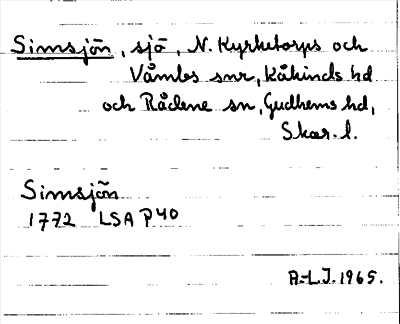 Simsjön, sjö, N. Kyrketorps och
Våmbs snr, Kåkinds hd
och Rådene sn, Gudhems hd,
Skar. l.
Simsjön
1772 LSA P40
A.-L.J. 1965.